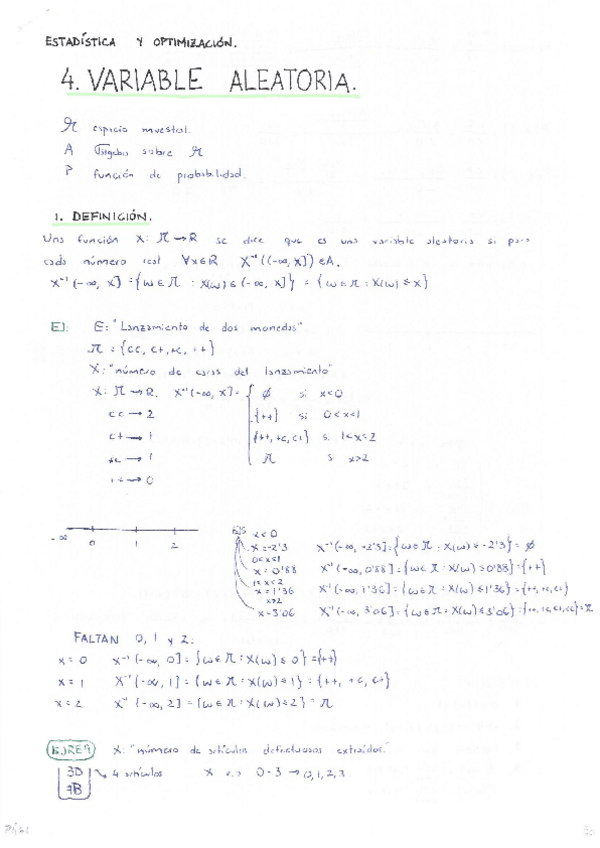 ESTADÍSTICA Y OPTIMIZACIÓN.
4. VARIABLE ALEATORIA.
Ω espacio muestral.
A σ álgebra sobre Ω
P función de probabilidad.
1. DEFINICIÓN.
Una función X: Ω → R se dice que es una variable aleatoria si para
cada número real ∀x∈R X⁻¹((-∞, x]) ∈ A.
X⁻¹(-∞, x] = {ω∈Ω : X(ω) ∈ (-∞, x]} = {ω∈Ω : X(ω) ≤ x}
EJ: E: "Lanzamiento de dos monedas"
Ω = {cc, c+, +c, ++}
X: "número de caras del lanzamiento"
X: Ω → R. X⁻¹(-∞, x] = { ∅ si x<0
cc → 2 {++} si 0<x<1
c+ → 1 {++, +c, c+} si 1<x<2
+c → 1 Ω si x>2
++ → 0
-∞ 0 1 2
EJS x<0
x = -2'3 X⁻¹(-∞, -2'3] = {ω∈Ω : X(ω) ≤ -2'3} = ∅
0<x<1
x = 0'88 X⁻¹(-∞, 0'88] = {ω∈Ω : X(ω) ≤ 0'88} = {++}
1<x<2
x = 1'36 X⁻¹(-∞, 1'36] = {ω∈Ω : X(ω) ≤ 1'36} = {++, +c, c+}
x>2
x = 3'06 X⁻¹(-∞, 3'06] = {ω∈Ω : X(ω) ≤ 3'06} = {++, +c, c+, cc} = Ω
FALTAN 0, 1 y 2:
x = 0 X⁻¹(-∞, 0] = {ω∈Ω : X(ω) ≤ 0} = {++}
x = 1 X⁻¹(-∞, 1] = {ω∈Ω : X(ω) ≤ 1} = {++, +c, c+}
x = 2 X⁻¹(-∞, 2] = {ω∈Ω : X(ω) ≤ 2} = Ω
X: "número de artículos defectuosos extraídos."
3D → 4 artículos X 0-3 → 0, 1, 2, 3.
7B